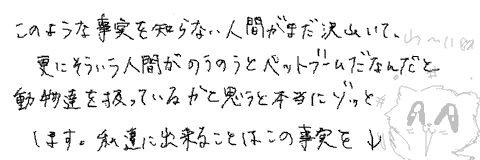 このような事実を知らない人間がまだ沢山いて、
更にそういう人間がのうのうとペットブームだなんだと
動物達を扱っているかと思うと本当にゾッと
します。私達に出来ることはこの事実を ↓